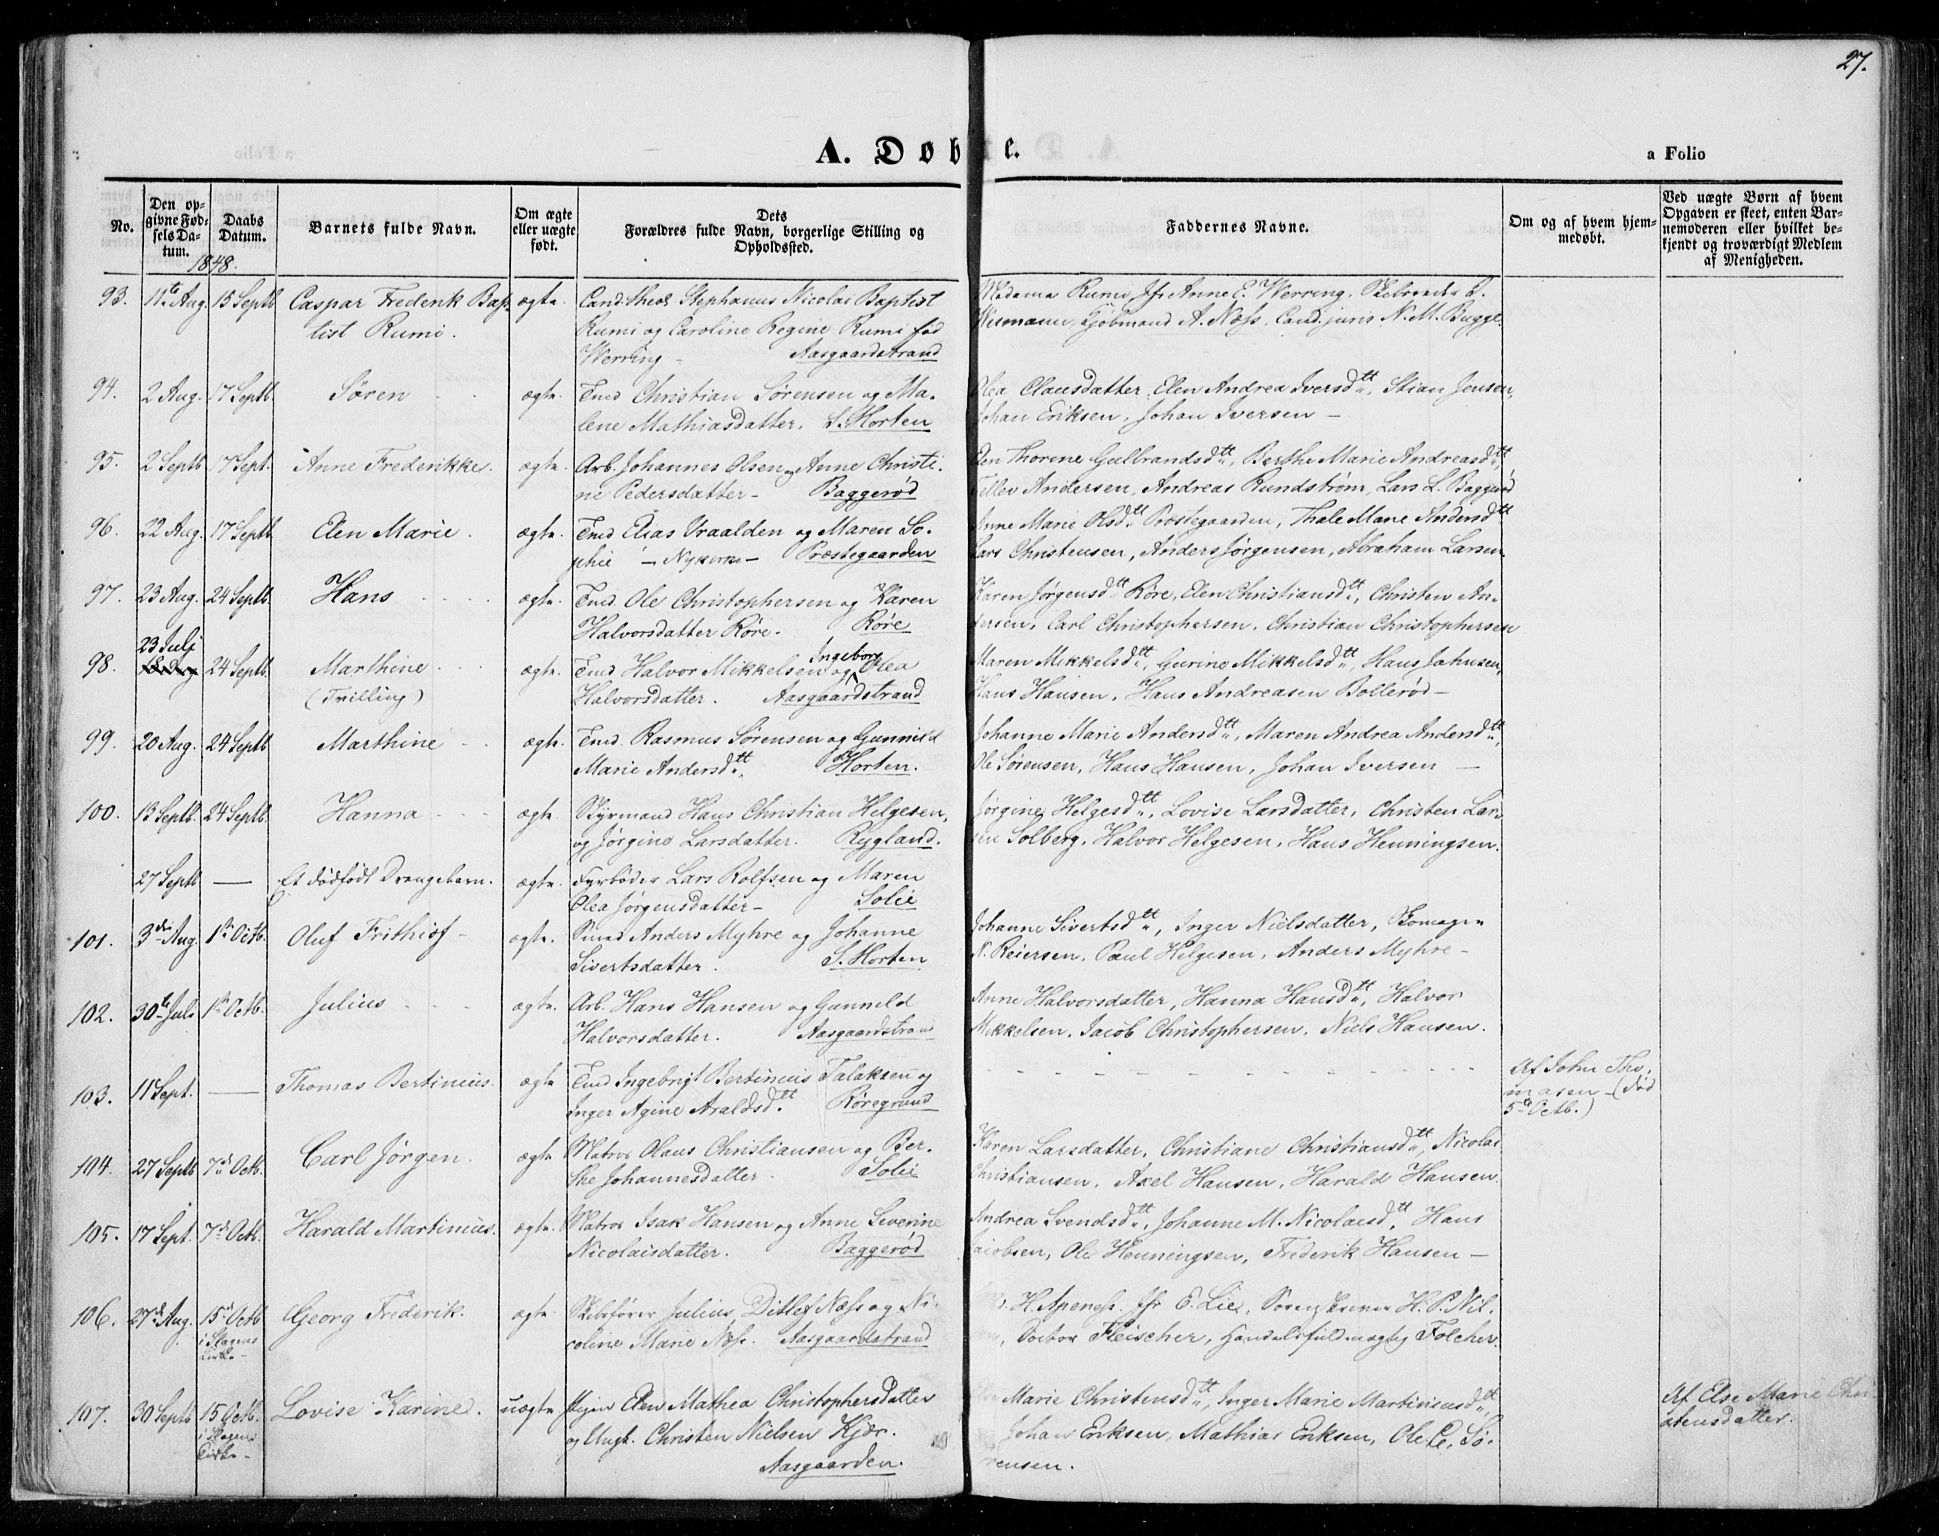 27.
A. Døbte.
a Folio
No.
Den op-
givne Fød-
sels Da-
tum.
Daabs
Datum.
Barnets fulde Navn.
Om ægte
eller uægte
født.
Dets
Forældres fulde Navn, borgerlige Stilling og
Opholdssted.
Faddernes Navne.
Om og af hvem hjem-
medøbt.
Ved uægte Børn af hvem
Opgaven er skeet, enten Bar-
nemoderen eller hvilket be-
kjendt og troværdigt Medlem
af Menigheden.
1848.
93. 11te Aug. 15 Septb Caspar Frederik Bap- ægte. Cand: theol Stephanus Nicolai Baptist Madame Rumi, Jfr Anne C. Werring,
tist Rumi. Rumi og Caroline Regine Rumi fød Kjøbmand A. Næss, Cand. juris N. M. Bugge.
Werring - Aasgaardstrand
94. 2 Aug. 17 Septb. Søren ægte. Tmd Christian Sørensen og Ma- Olea Clausdatter, Elen Andrea Iversdtt, Stian Jensen,
lene Mathiasdatter. S. Horten Johan Eriksen, Johan Iversen -
95. 2 Septb 17 Sept. Anne Frederikke. ægte. Arb. Johannes Olsen og Anne Christi- Elen Thorine Gulbrandsdtt, Berthe Marie Andreasdtt,
ne Pedersdatter - Baggerød Tellev Andersen, Andreas Rundstrøm, Lars L. Baggerød
96. 22 Aug. 17 Septb Elen Marie. ægte. Tmd Elias Vraalden og Maren So- Anne Marie Olsdtt Præstegaarden, Thale Marie Andersdtt
phie - Nykirke - Præstegaarden Lars Christensen, Anders Jørgensen, Abraham Larsen
97. 23 Aug. 24 Septb. Hans ægte. Tmd. Ole Christophersen og Karen Karen Jørgensdtt Røre, Elen Christiansdtt, Christen An-
Halvorsdatter Røre. Røre dersen, Carl Christophersen, Christian Christophersen
23 Julj
98. 24 Septb. Marthine ægte. Tmd Halvor Mikkelsen og Ingeborg Olea Maren Mikkelsdtt, Gurine Mikkelsdtt, Hans Jahnsen,
(Tvilling) Halvorsdatter. Aasgaardstrand Hans Hansen, Hans Andreasen Bollerød -
99. 20 Aug. 24 Septb Marthine ægte. Tmd. Rasmus Sørensen og Gunnild Johanne Marie Andersdtt, Maren Andrea Andersdtt,
Marie Andersdtt. Horten. Ole Sørensen, Hans Hansen, Johan Iversen -
100. 13 Septb. 24 Septb. Hanna ægte. Styrmand Hans Christian Helgesen, Jørgine Helgesdtt, Lovise Larsdatter, Christen Lar-
og Jørgine Larsdatter. Rygland. sen Solberg, Halvor Helgesen, Hans Henningsen.
27 Septb — Et dødfødt Drengebarn. ægte. Fyrbøder Lars Rolfsen og Maren
Olea Jørgensdatter - Solie
101. 3die Aug. 1ste Octb. Oluf Frithiof - ægte. Smed Anders Myhre og Johanne Johanne Sivertsdtt, Inger Nielsdatter, Skomager
Sivertsdatter. S. Horten N. Reiersen, Paul Helgesen, Anders Myhre -
102. 30te Juli 1ste Octb. Julius ægte. Arb. Hans Hansen og Gunnild Anne Halvorsdatter, Hanna Hansdtt, Halvor
Halvorsdatter. Aasgaardstrand Mikkelsen, Jacob Christophersen, Niels Hansen.
103. 11 Sept. — Thomas Bertinius. ægte Tmd Ingebrigt Bertinius Talaksen og Af John Tho-
Inger Agine Araldsdtt. Røregrund masen - (død
5te Octb.)
104. 27 Septb 7de Octb. Carl Jørgen. ægte Matros Olaus Christiansen og Ber- Karen Larsdatter, Christiane Christiansdtt, Nicolai
the Johannesdatter. Solie Christiansen, Axel Hansen, Harald Hansen.
105. 17 Sept. 7de Octb. Harald Martinius. ægte. Matros Isak Hansen og Anne Siverine Andrea Svendsdtt, Johanne M. Nicolaisdtt, Hans
Nicolaisdatter. Baggerød Jacobsen, Ole Henningsen, Frederik Hansen -
106. 27de Aug. 15de Octb Georg Frederik. ægte Skibsfører Julius Ditlef Næss og Ni- H. Apeness, Jfr E. Lie, H. P. Nil-
i Slagens coline Marie Næss. Aasgaardstrand Doctor Fleischer, Handelsfuldmægtig Folcher.
Kirke -
107. 30 Septb 15 Octb. Lovise Karine. uægte Pigen Elen Mathea Christophersdatter Marie Christensdtt, Inger Marie Martiniusdtt, Af Else Marie Chri-
i Slagens og Ungk. Christen Nielsen Kjær. Johan Eriksen, Mathias Eriksen, Ole C. Sø- stensdatter.
Kirke - Aasgaarden. rensen.